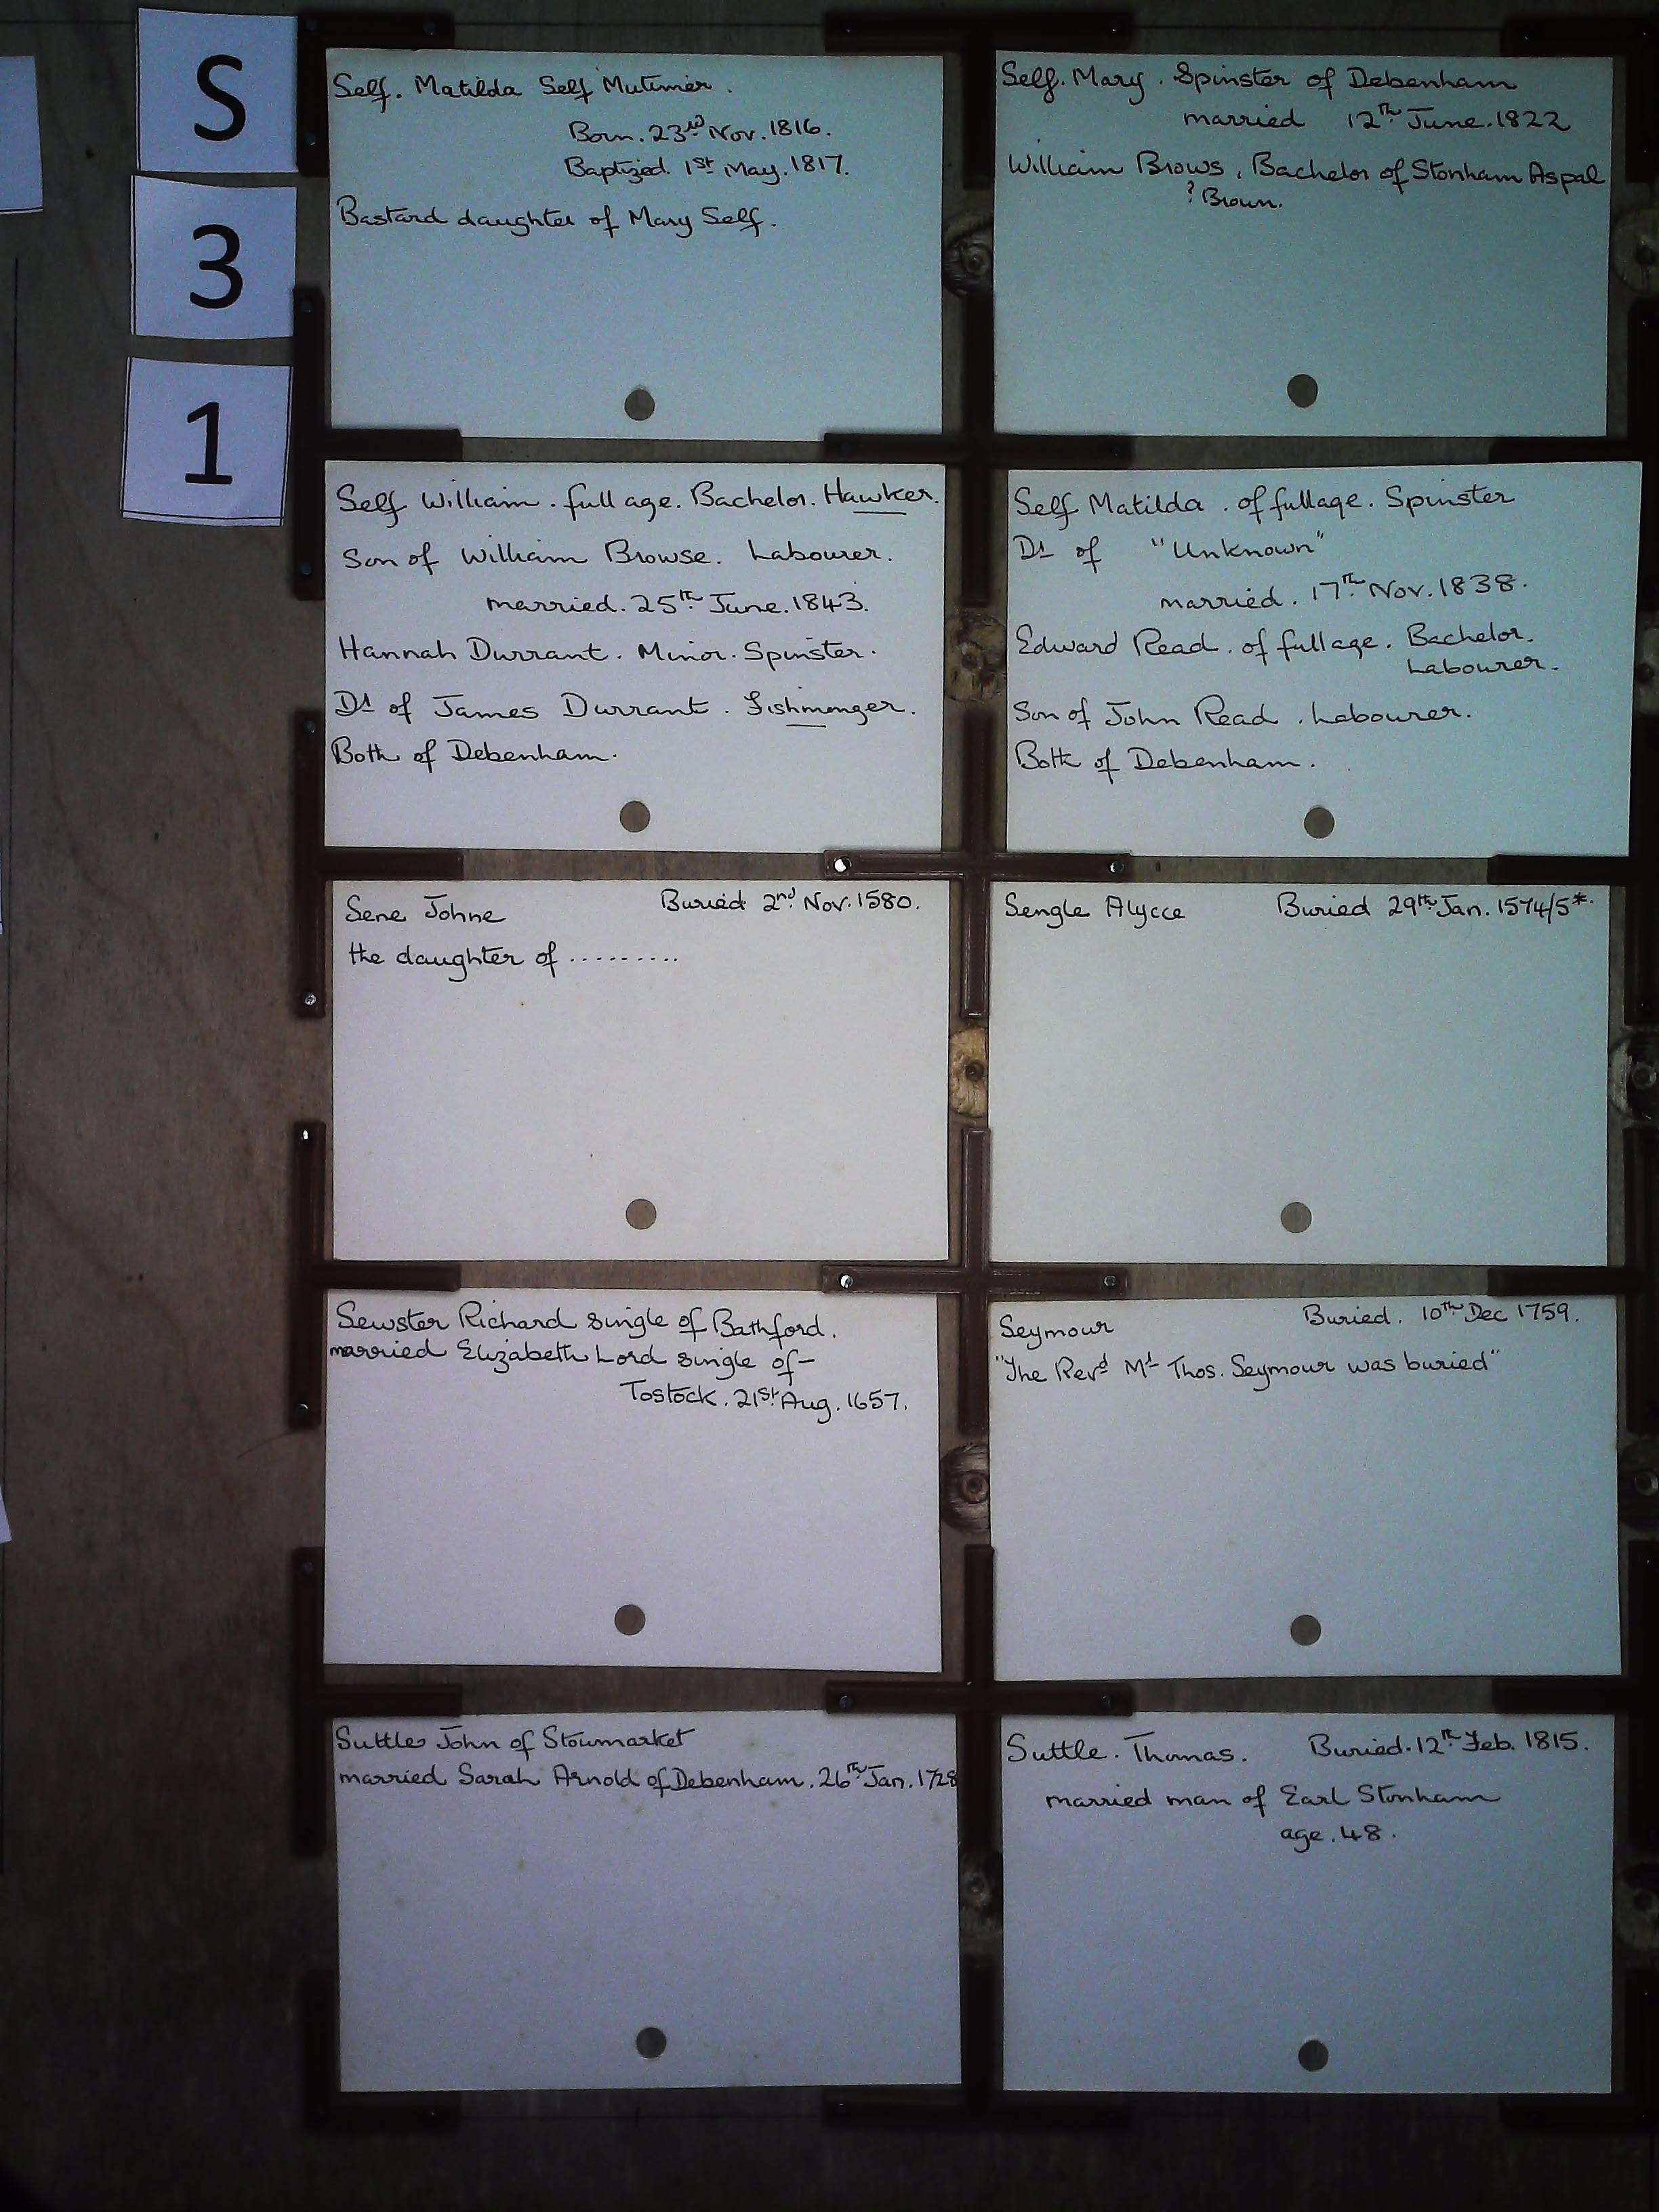 S
3
1
Self. Matilda Self Mutimer.
Born. 23rd Nov. 1816.
Baptized. 1st May. 1817.
Bastard daughter of Mary Self.
Self. Mary. Spinster of Debenham
married 12th June. 1822
William Brows, Bachelor of Stonham Aspal
? Brown.
Self William. full age. Bachelor. Hawker.
Son of William Browse. Labourer.
married. 25th June. 1843.
Hannah Durrant. Minor. Spinster.
Dt of James Durrant. Fishmonger.
Both of Debenham.
Self Matilda. of full age. Spinster
Dt of "Unknown"
married. 17th Nov. 1838.
Edward Read. of full age. Bachelor.
Labourer.
Son of John Read. Labourer.
Both of Debenham.
Sene Johne Buried 2nd Nov. 1580.
the daughter of .........
Sengle Alycce Buried 29th Jan. 1574/5*.
Sewster Richard single of Bathford.
married Elizabeth Lord single of-
Tostock. 21st Aug. 1657.
Seymour Buried. 10th Dec 1759.
"The Revd Mr Thos. Seymour was buried"
Suttle John of Stowmarket
married Sarah Arnold of Debenham. 26th Jan. 1728
Suttle. Thomas. Buried. 12th Feb. 1815.
married man of Earl Stonham
age. 48.